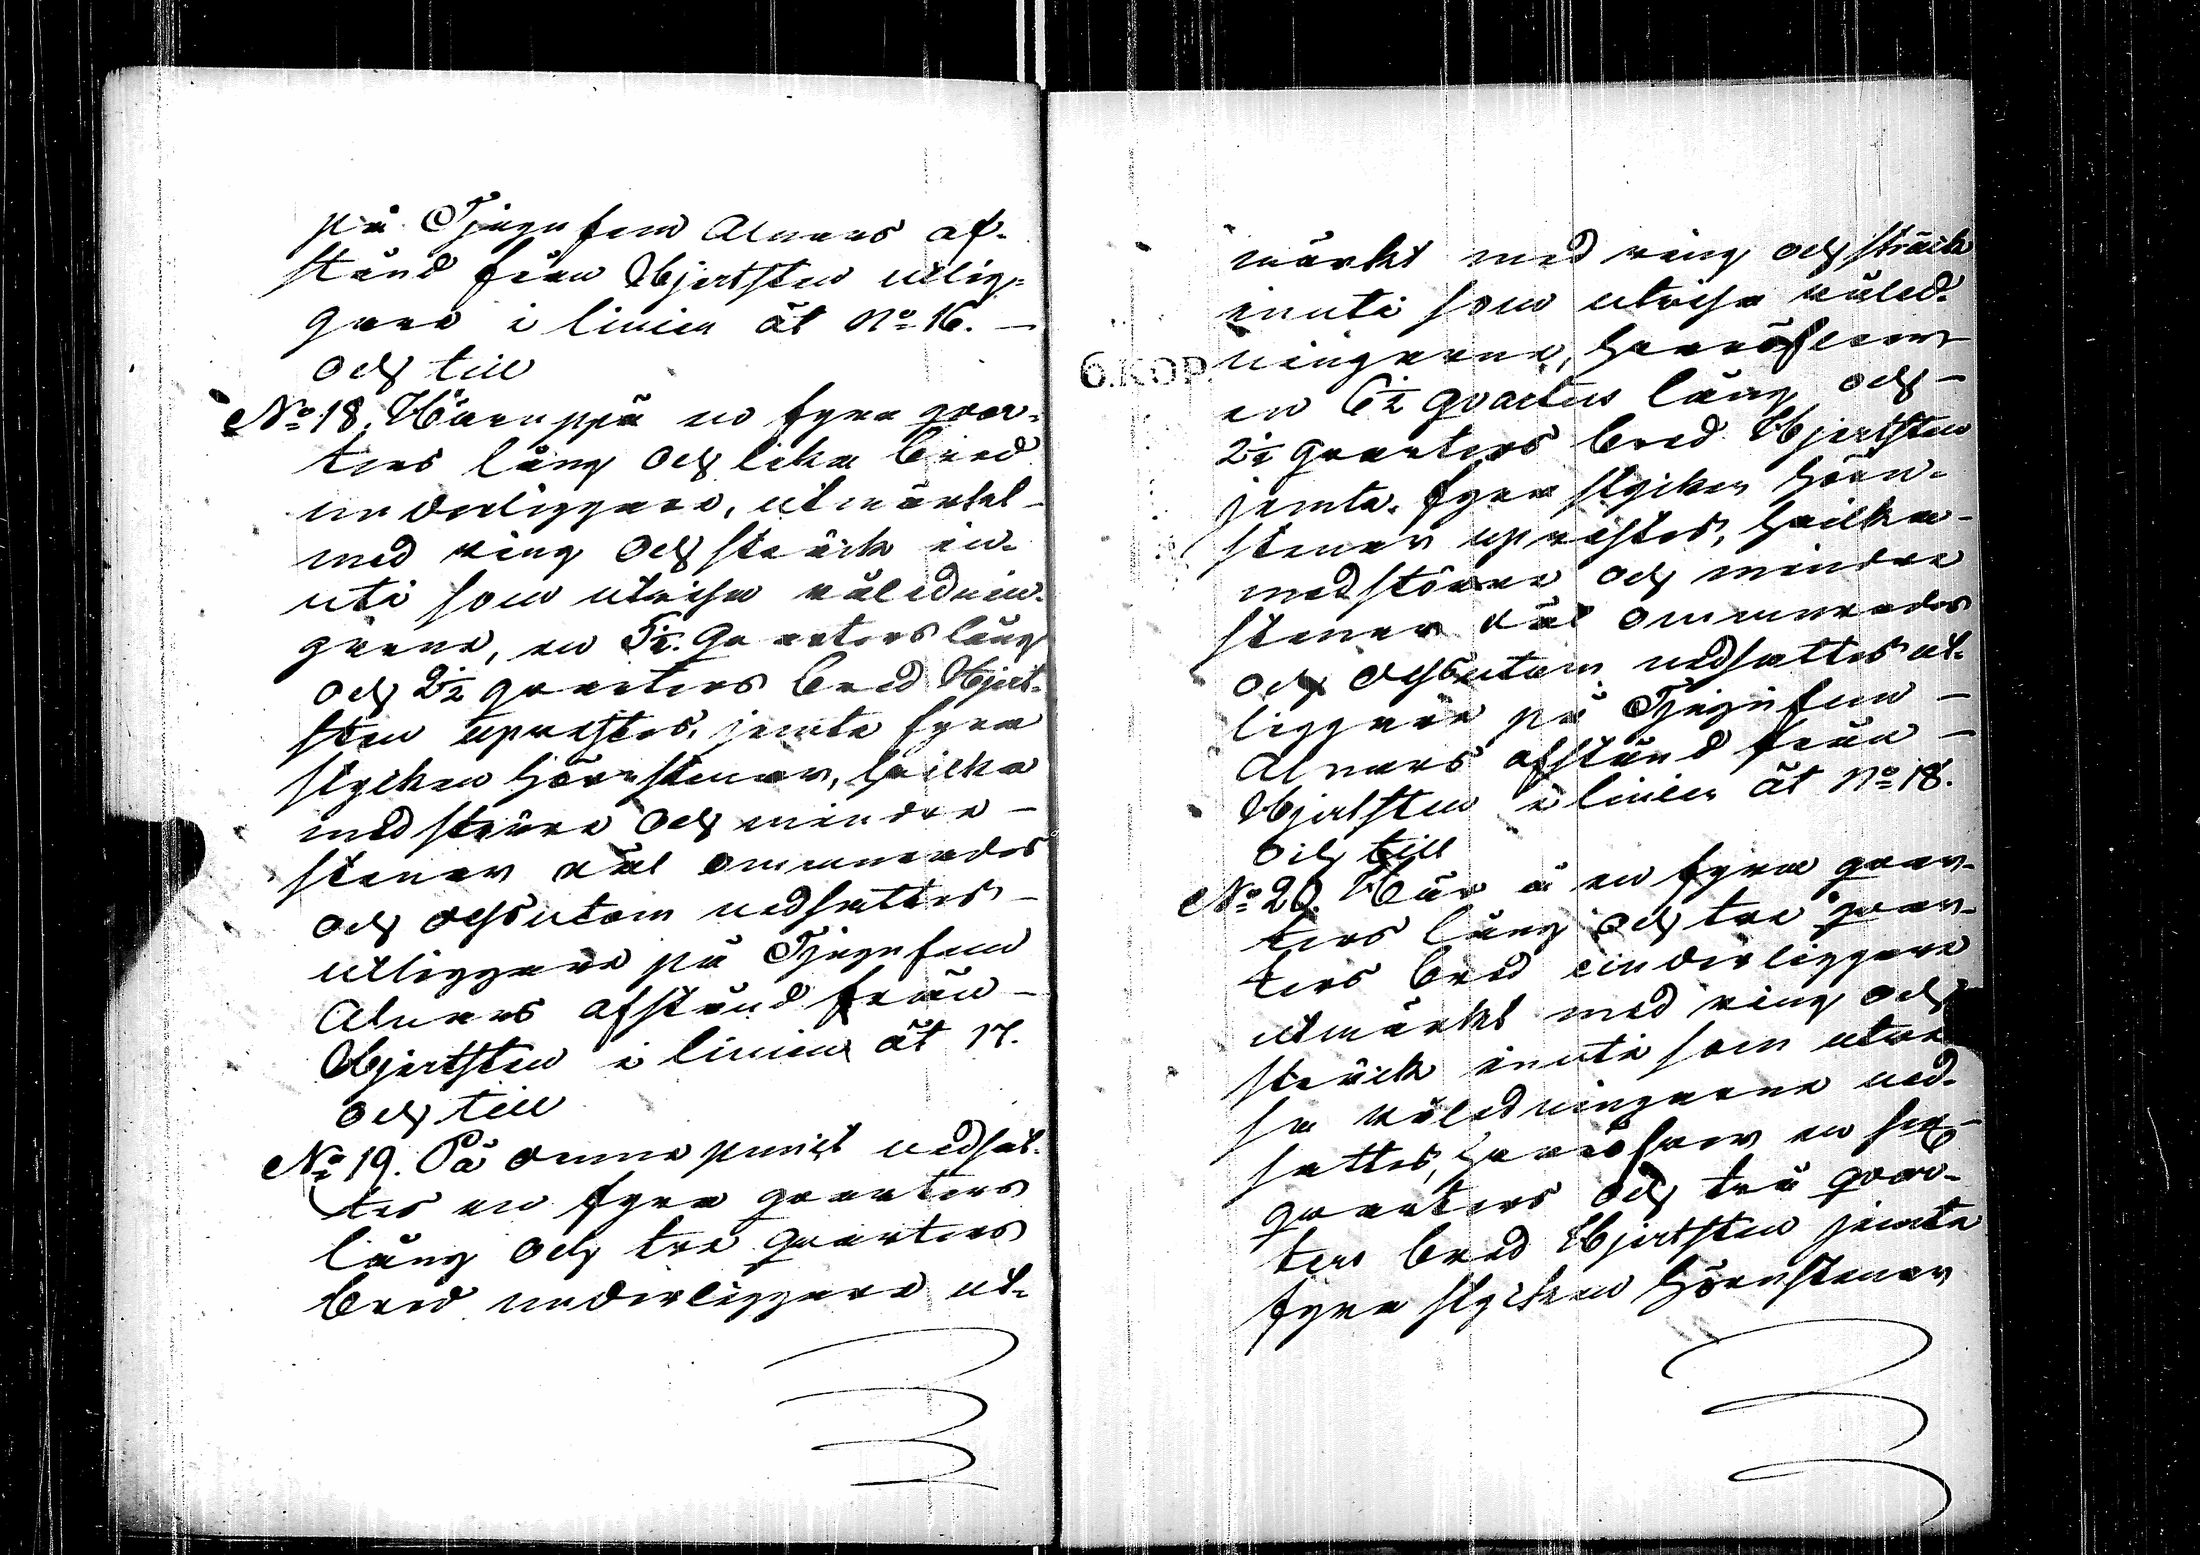 på Tjugufem Alnars af-
stånd från Hjertsten utlig-
gare i linien åt No 16. -
och till
No 18. Häruppå en fyra qvar-
ters lång och lika bred
underliggare, utmärkt -
med ring och sträck in-
uti som utvisa rålednin-
garne, en 5½ Quarters lång
och 2½ quarters bred Hjert-
sten uprestes, jemte fyra
stycken hörnstenar, hvilka
med större och mindre -
stenar väl ommurades
och dessutom nedsattes -
utliggare på Tjugufem
Alnars afstånd från -
Hjertsten i linien åt 17.
och till
No 19. På denna punct nedsat-
tes en fyra quarters
lång och tre quarters
bred underliggare ut-
märkt med ring och sträck
inuti som utvisa råled-
ningarne, hvaröfver
6. KOP.
en 6½ quarters lång och -
2½ quarters bred Hjertsten
jemte fyra stycken hörn-
stenar uprestes, hvilka -
med större och mindre
stenar väl ommurades
och dessutom nedsattes ut-
liggare på Tjugufem -
Alnars afstånd från -
Hjertsten i linien åt No 18.
och till
No 20. Här å en fyra quar-
ters lång och tre quar-
ters bred underliggare
utmärkt med ring och
sträck inuti som utvi
sa råledningarne ned-
sattes, hvaröfver en sex
quarters och två quar-
ters bred Hjertsten jemte
fyra stycken hörnstenar